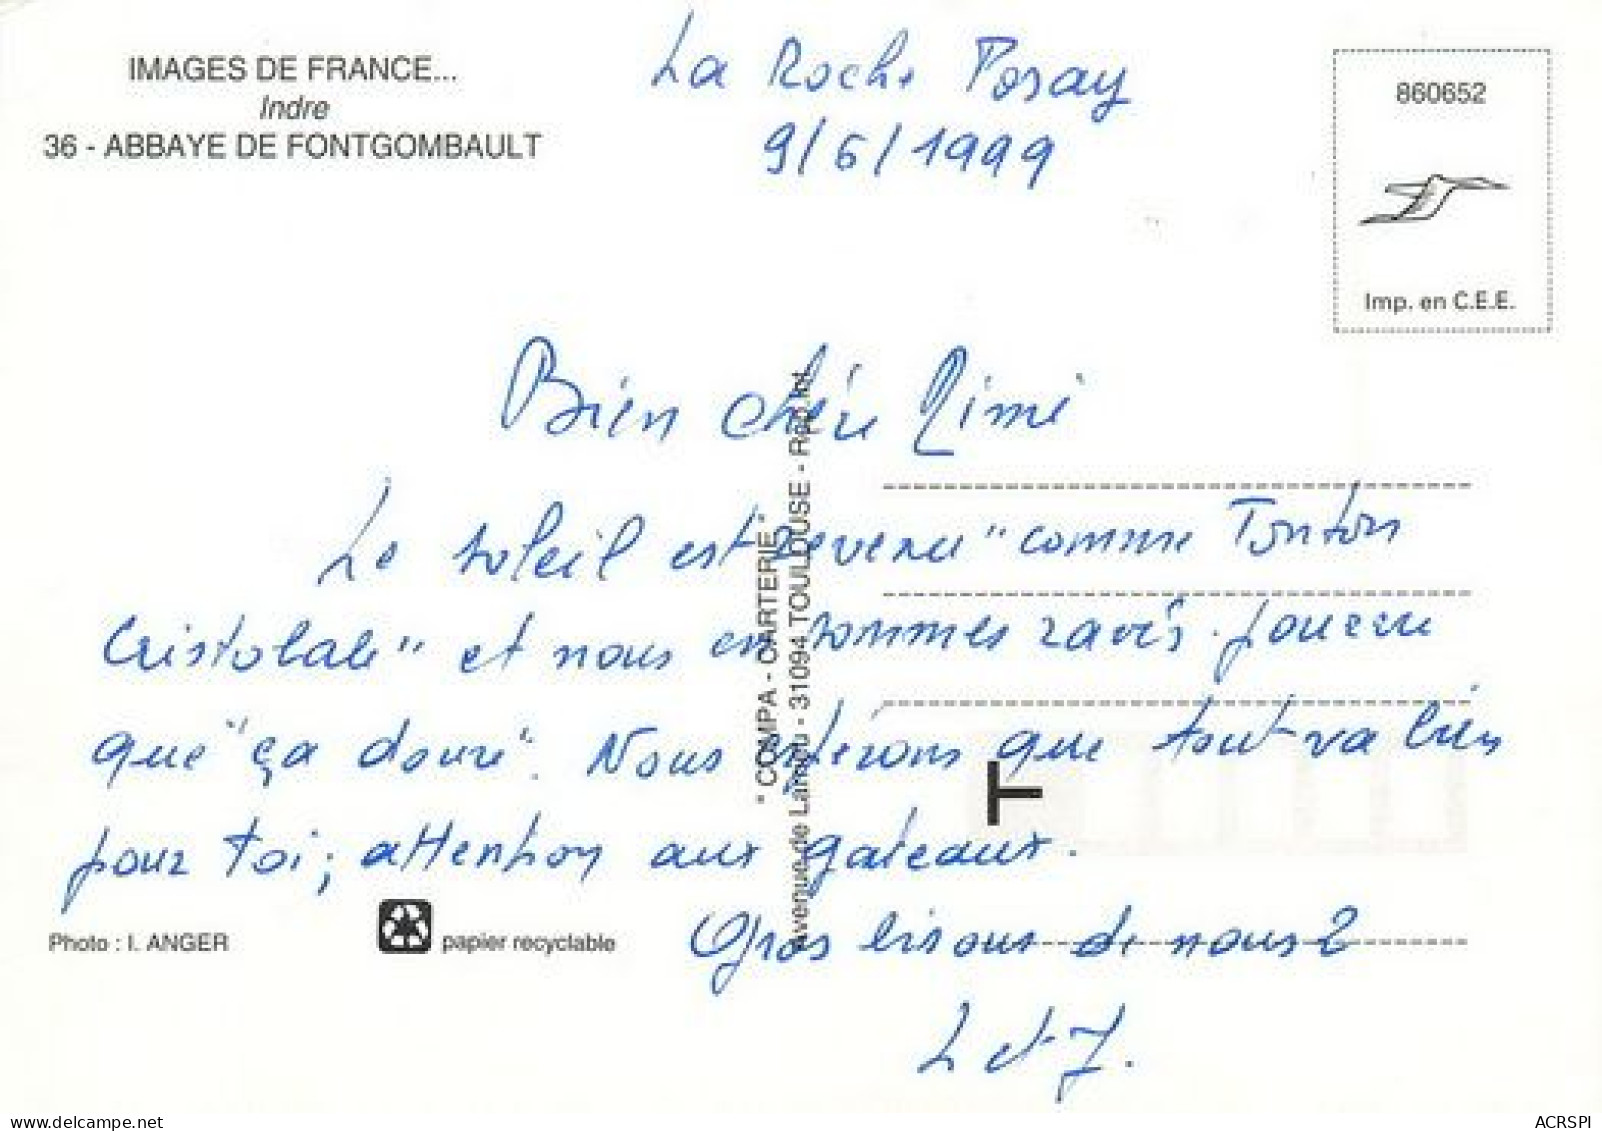 IMAGES DE FRANCE...
Indre
36 - ABBAYE DE FONTGOMBAULT
La Roche Posay
9/6/1999
860652
Imp. en C.E.E.
Bien chère Mimi
Le soleil est revenu "comme Tonton
Cristobale" et nous en sommes ravis. pourvu
que "ça doure". Nous espérons que tout va bien
pour toi ; attention aux gateaux.
Gros bisous de nous 2
L et J.
" COMPA - CARTERIE "
avenue de - 31094 TOULOUSE - Rep. Int
T
Photo : I. ANGER
papier recyclable
www.delcampe.net
ACRSPI